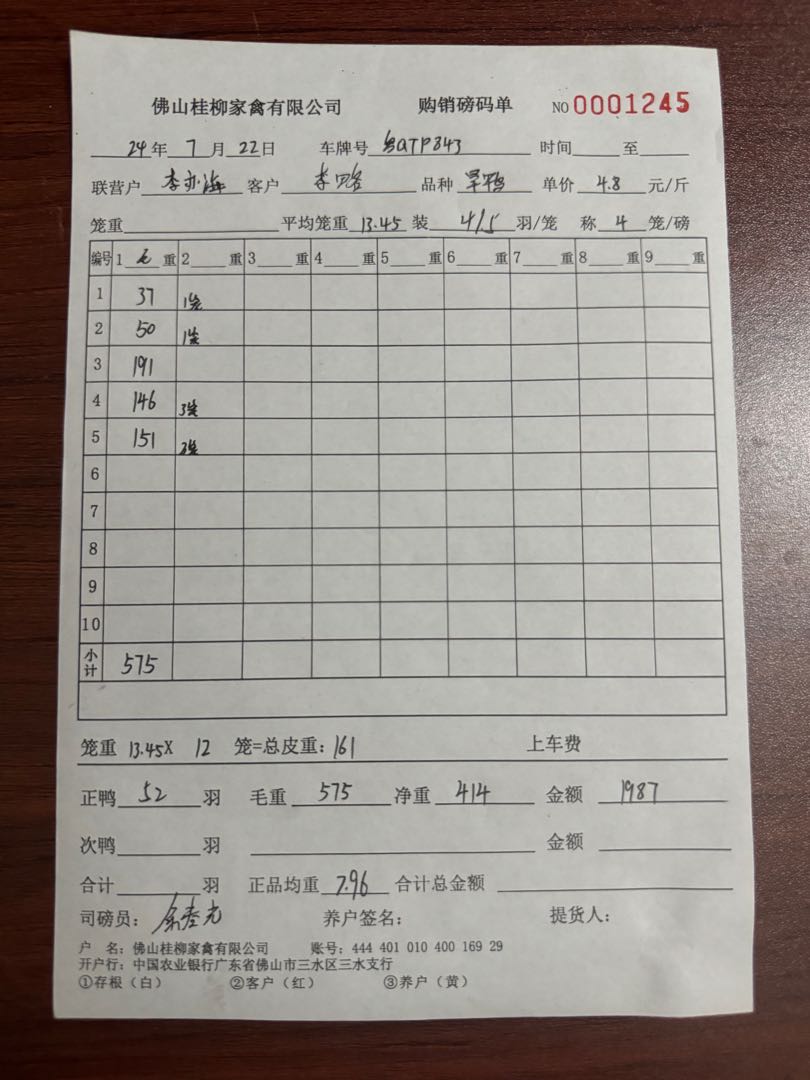 佛山桂柳家禽有限公司 购销磅码单 NO 0001245
24年 7月 22日 车牌号 粤QTP843 时间____至____
联营户 李亦海 客户 李 品种 旱鸭 单价 4.8 元/斤
笼重 平均笼重 13.45 装 4/5 羽/笼 称 4 笼/磅
编号 1 毛 重 2 重 3 重 4 重 5 重 6 重 7 重 8 重 9 重
1 37 1笼
2 50 1笼
3 191
4 146 3笼
5 151 3笼
6
7
8
9
10
小计 575
笼重 13.45X 12 笼=总皮重: 161 上车费
正鸭 52 羽 毛重 575 净重 414 金额 1987
次鸭 羽 金额
合计 羽 正品均重 7.96 合计总金额
司磅员: 养户签名: 提货人:
户 名: 佛山桂柳家禽有限公司 账号: 444 401 010 400 169 29
开户行: 中国农业银行广东省佛山市三水区三水支行
①存根（白） ②客户（红） ③养户（黄）